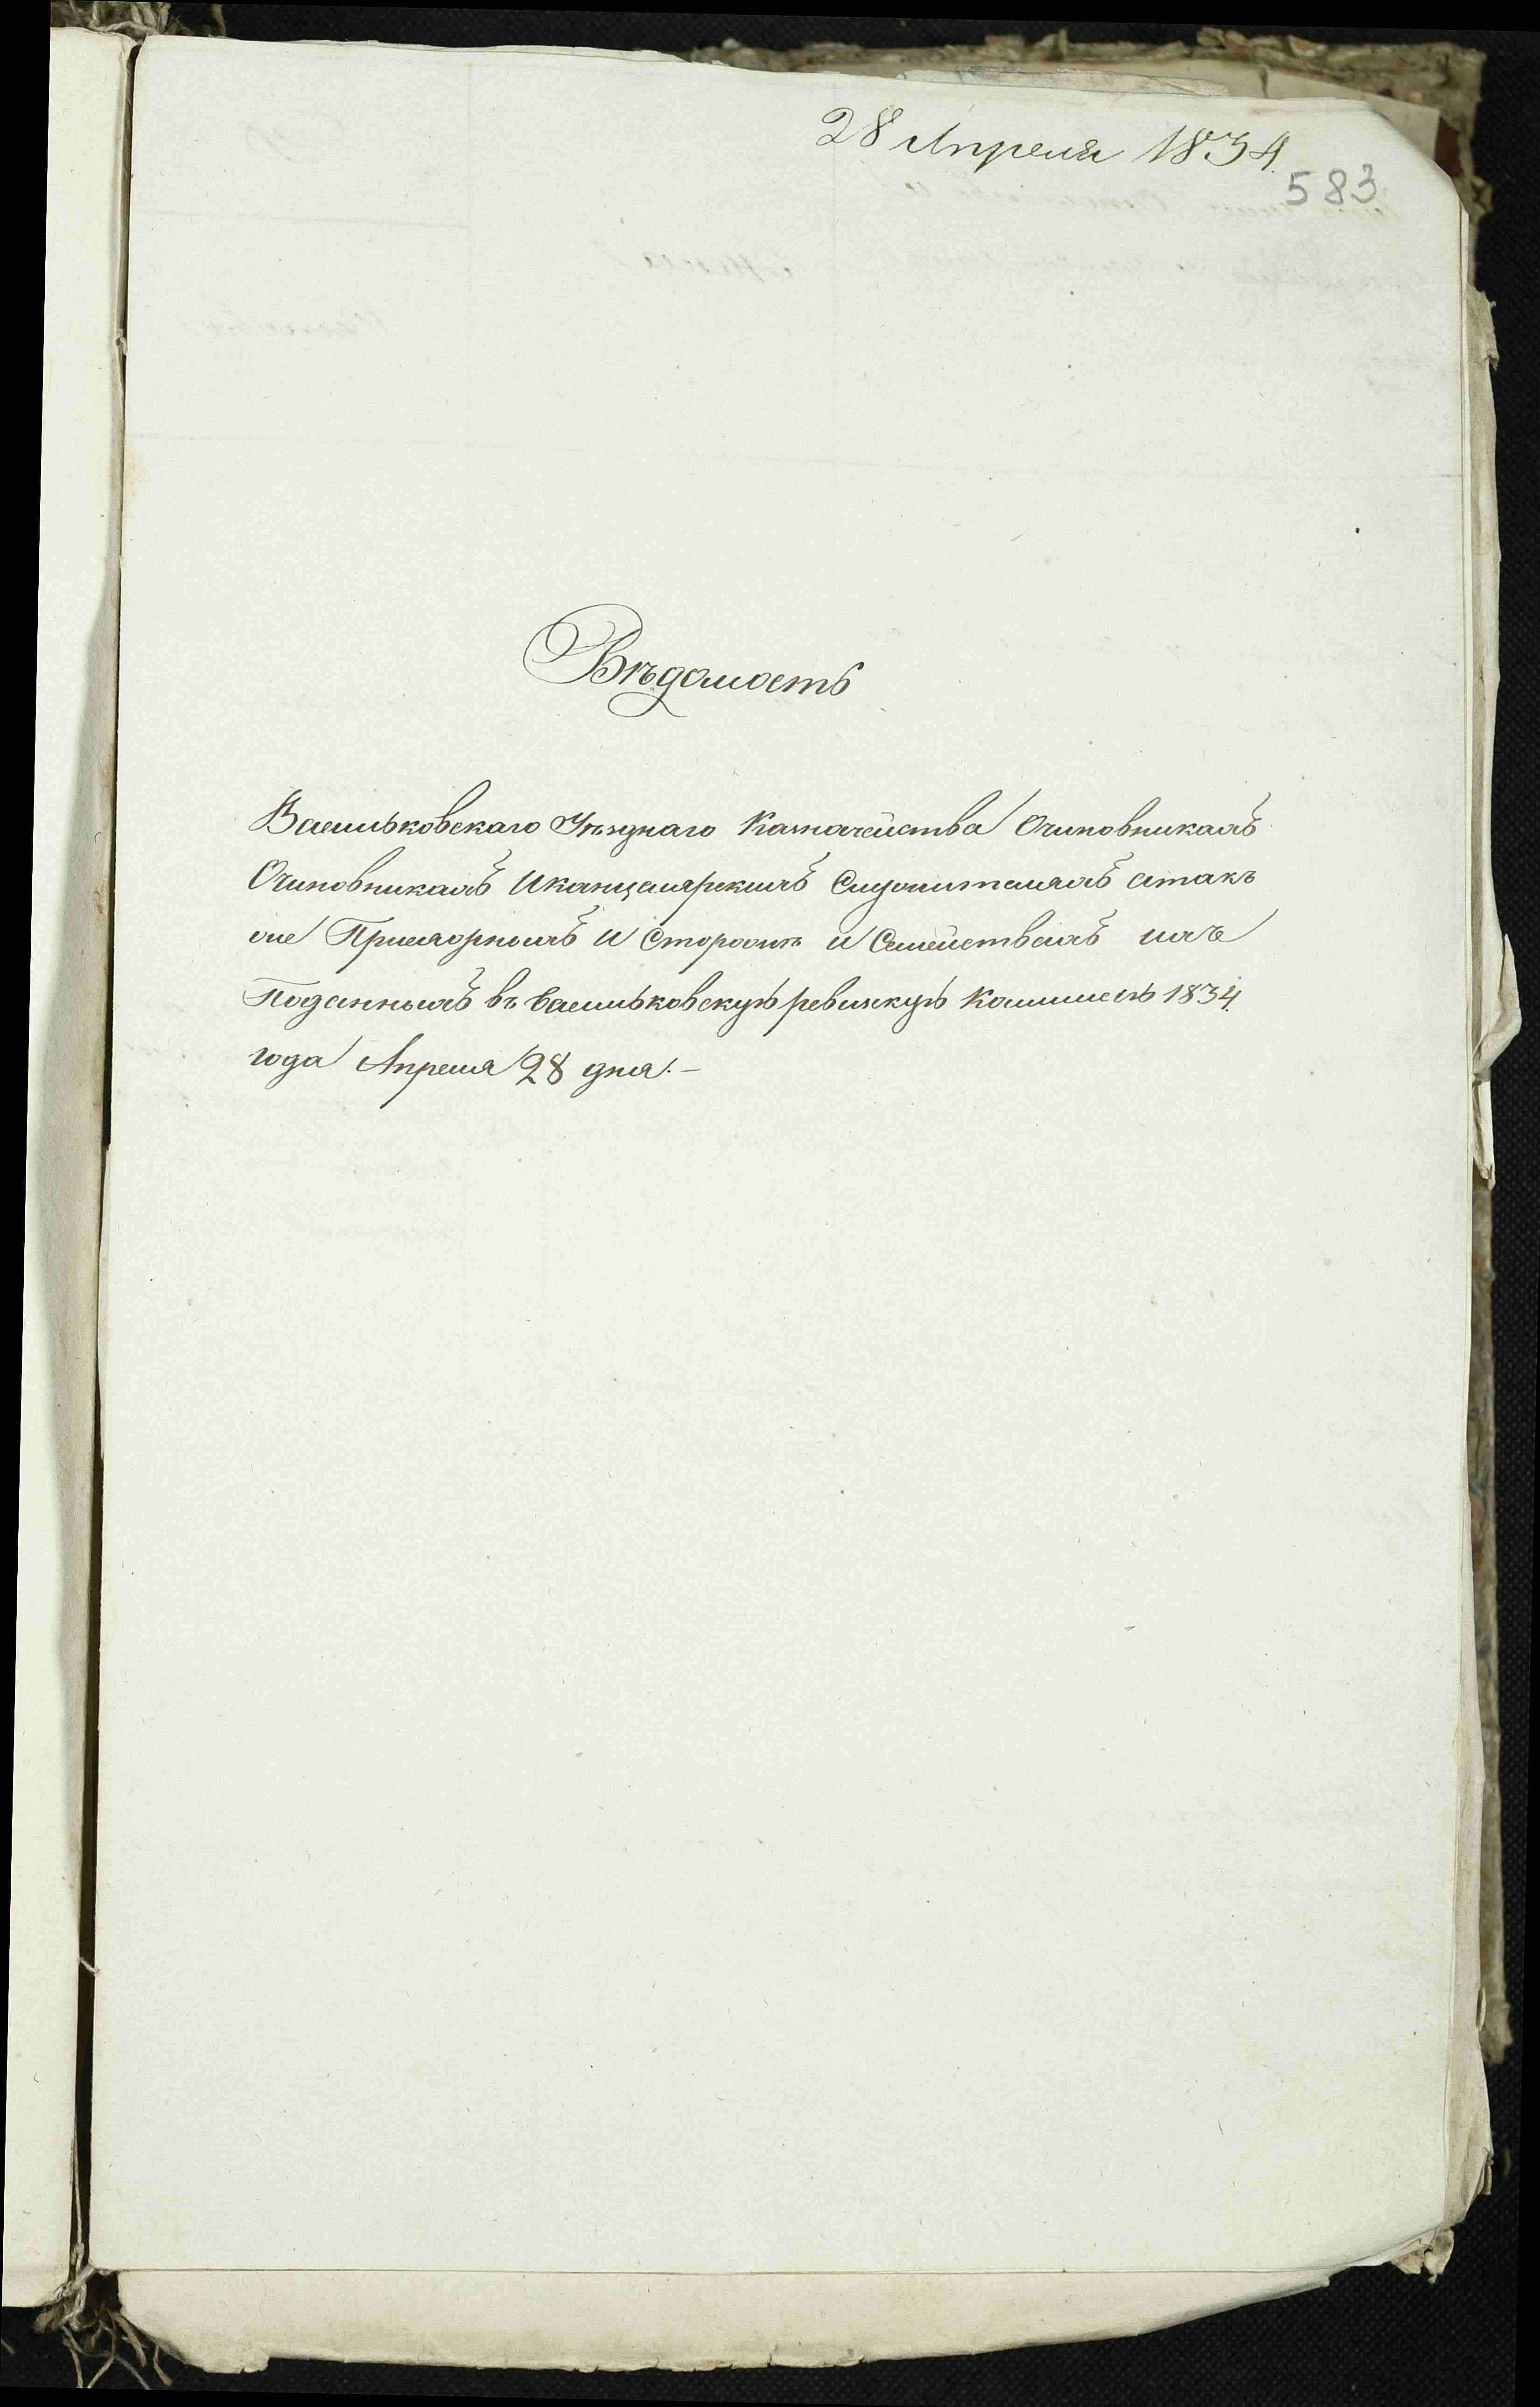 28 Апреля 1834.
583
Вѣдомость
Васильковскаго Уѣзднаго Казначейства Очиновникахъ
Очиновникахъ Иканцелярскихъ Служителяхъ атакъ
же Присяжныхъ И Сторожѣ и Семействахъ ихъ
Поданныхъ въ Васильковскую ревизскую Коммисію 1834.
года Апреля 28 дня.-